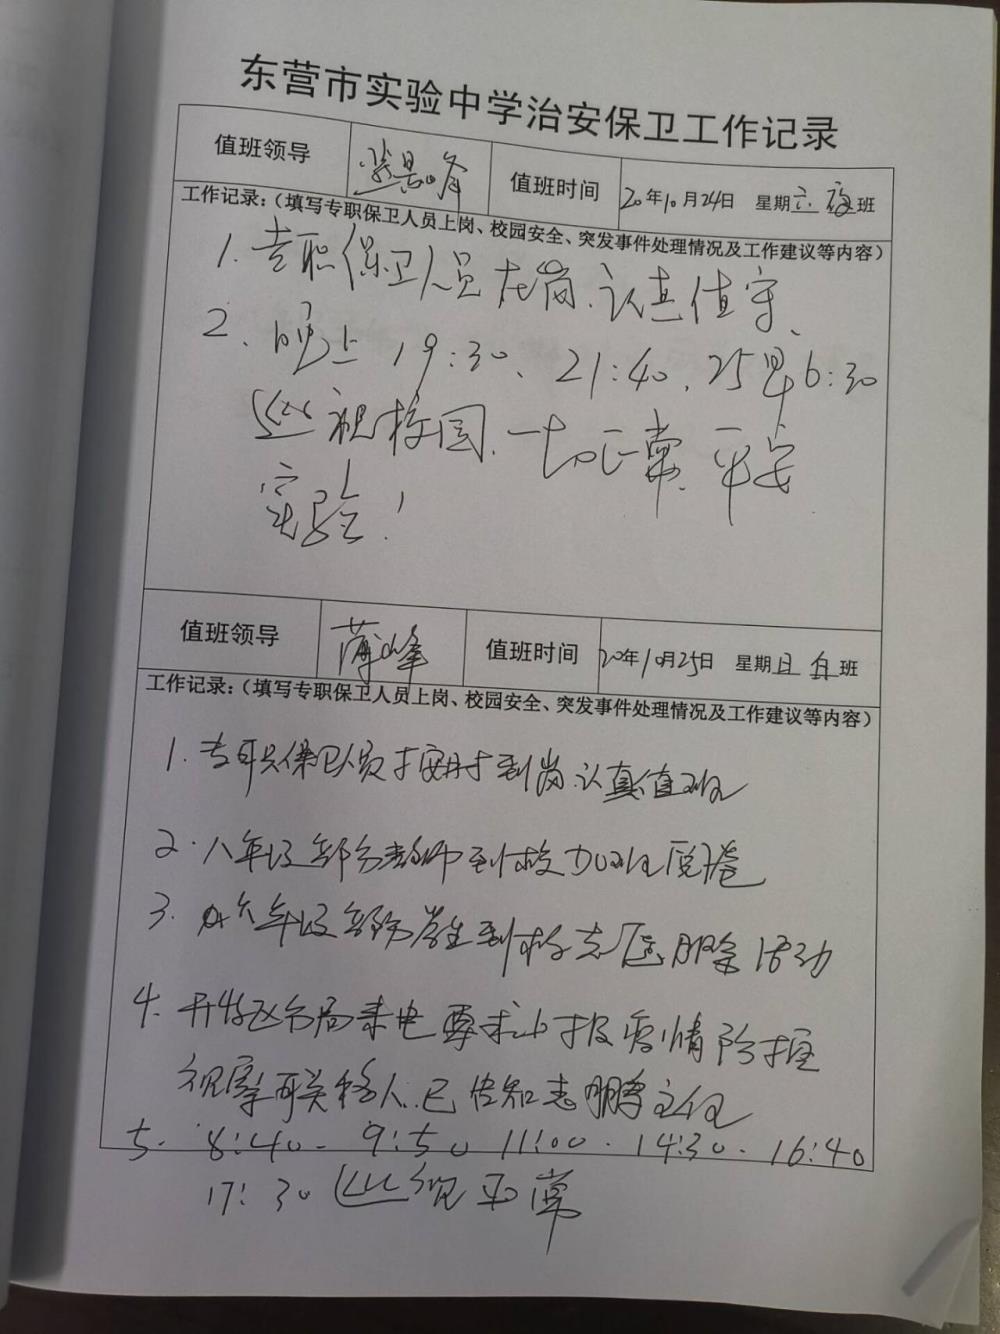 东营市实验中学治安保卫工作记录
值班领导 值班时间 20年10月24日 星期六 夜班
工作记录:(填写专职保卫人员上岗、校园安全、突发事件处理情况及工作建议等内容)
1. 专职保卫人员在岗、认真值守、
2、晚上19:30、21:40、25早6:30
巡视校园、一切正常、平安
实验!
值班领导 薄峰 值班时间 20年10月25日 星期日 白班
工作记录:(填写专职保卫人员上岗、校园安全、突发事件处理情况及工作建议等内容)
1. 专职保卫人员按时到岗.认真值班
2. 八年级部分教师到校加班阅卷
3. 六年级部分学生到校志愿服务活动
4. 开发区分局来电要求上报疫情防控
视察联络人.已告知志鹏主任
5. 8:40-9:50 11:00. 14:30. 16:40
17:30 巡视正常